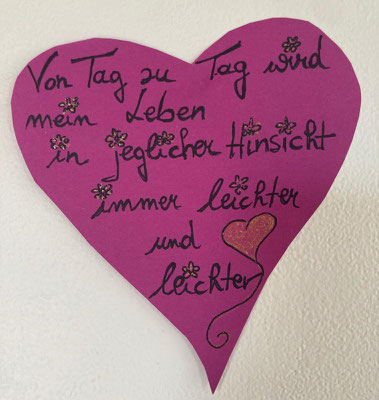 Von Tag zu Tag wird
mein Leben
in jeglicher Hinsicht
immer leichter
und
leichter